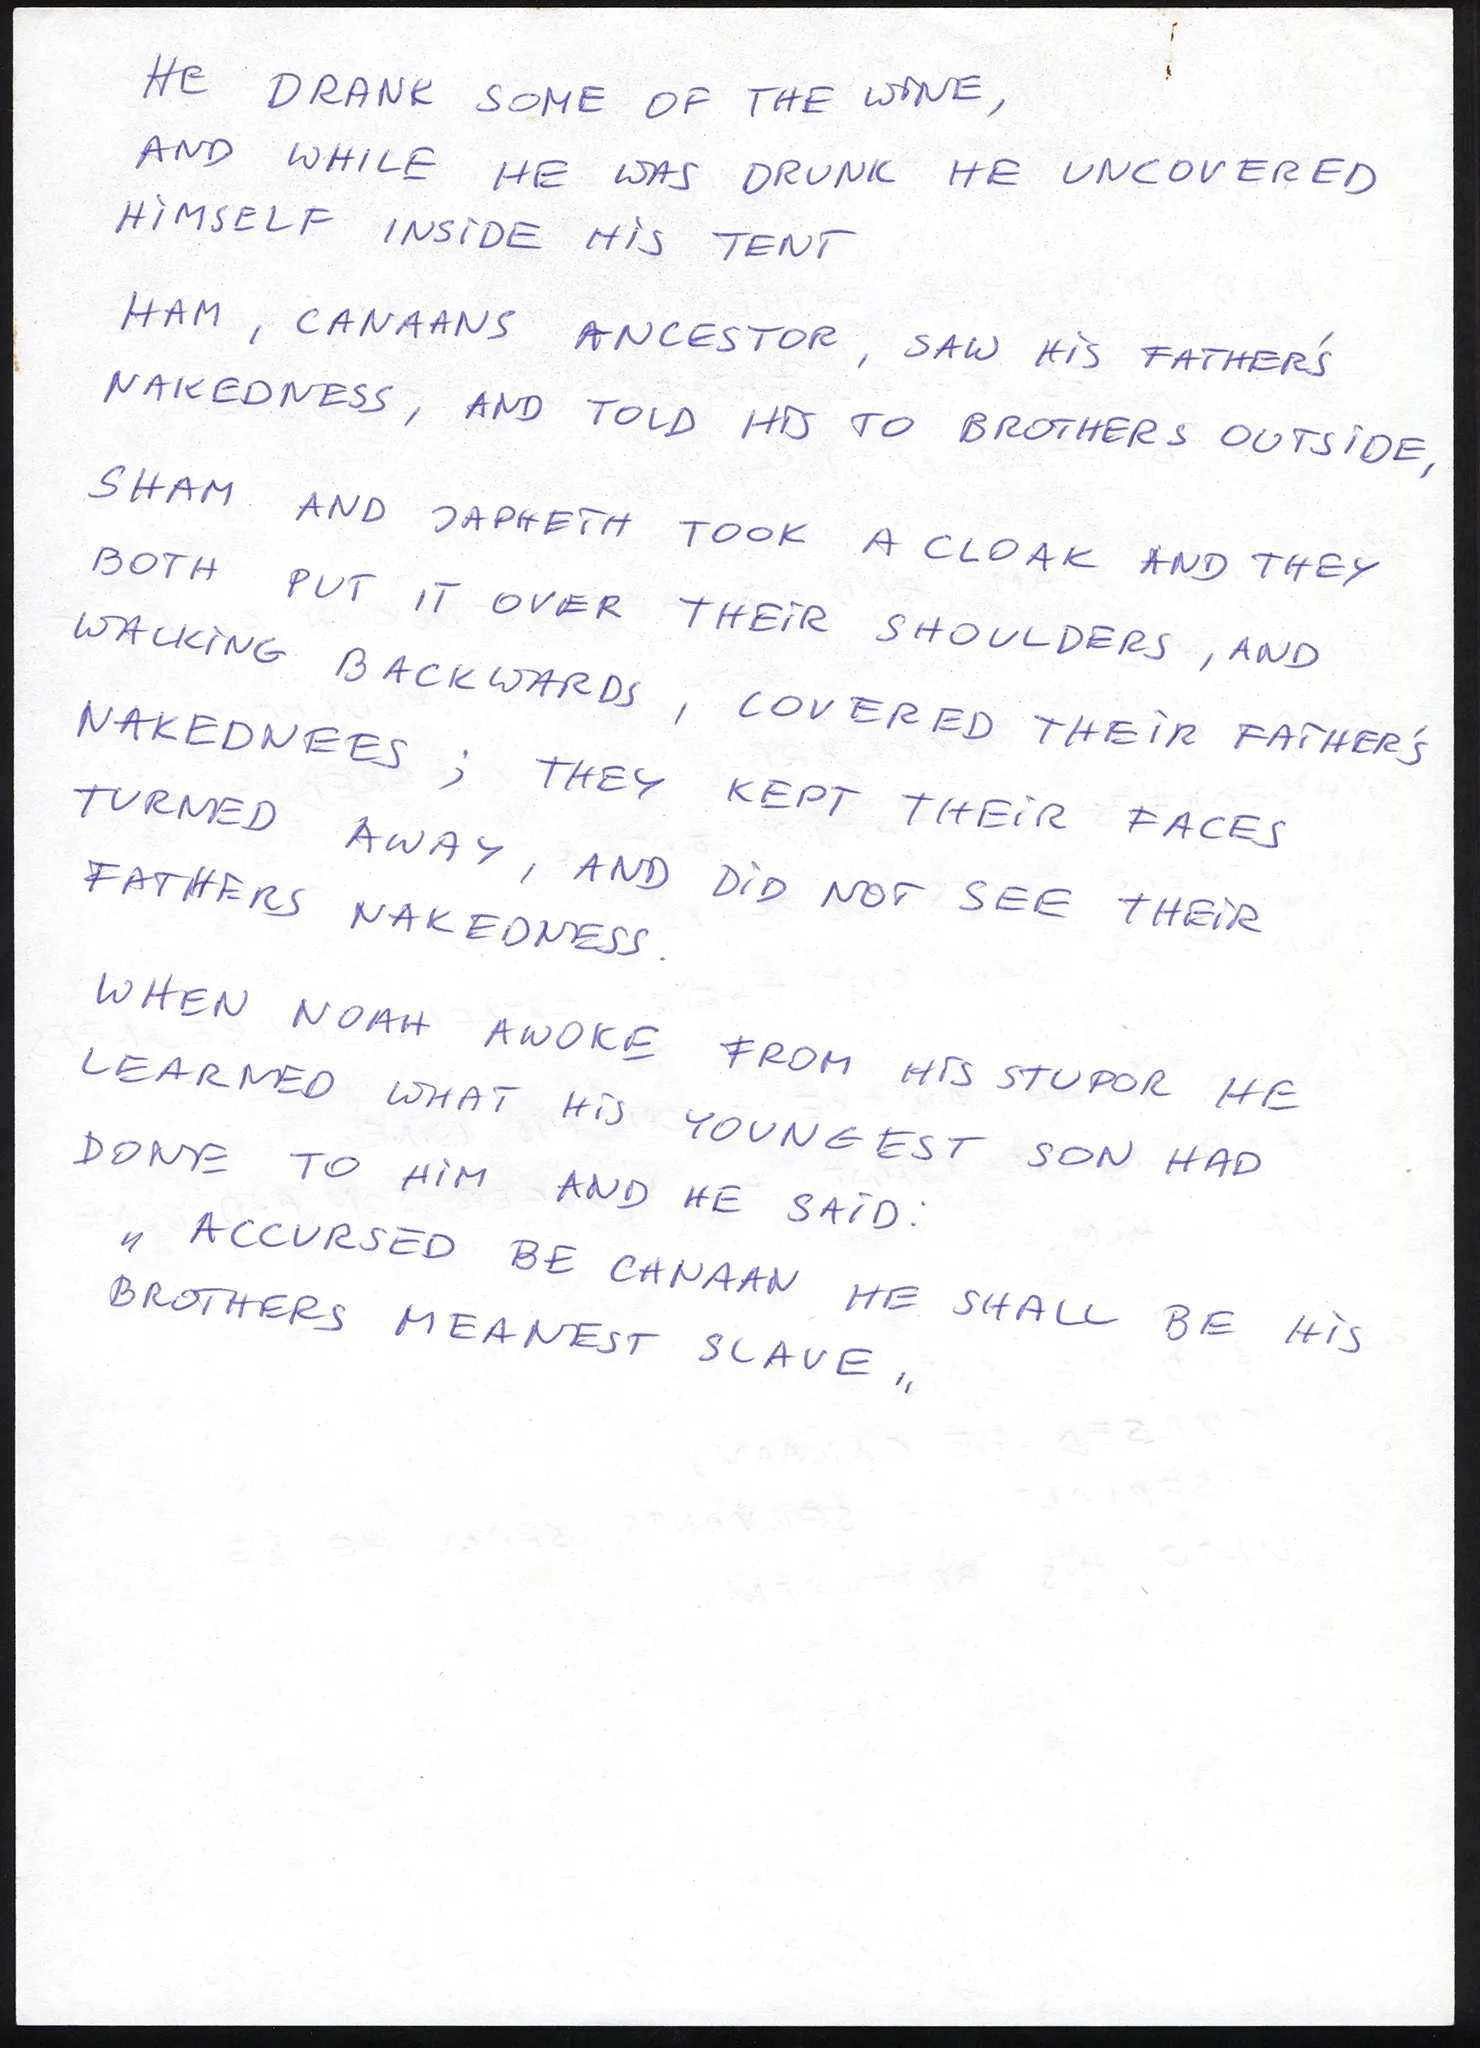 HE DRANK SOME OF THE WINE,
AND WHILE HE WAS DRUNK HE UNCOVERED
HIMSELF INSIDE HIS TENT
HAM, CANAANS ANCESTOR, SAW HIS FATHER'S
NAKEDNESS, AND TOLD HIS TO BROTHERS OUTSIDE,
SHAM AND JAPHETH TOOK A CLOAK AND THEY
BOTH PUT IT OVER THEIR SHOULDERS, AND
WALKING BACKWARDS, COVERED THEIR FATHER'S
NAKEDNEES; THEY KEPT THEIR FACES
TURNED AWAY, AND DID NOT SEE THEIR
FATHERS NAKEDNESS.
WHEN NOAH AWOKE FROM HIS STUPOR HE
LEARNED WHAT HIS YOUNGEST SON HAD
DONE TO HIM AND HE SAID:
„ ACCURSED BE CANAAN HE SHALL BE HIS
BROTHERS MEANEST SLAVE „